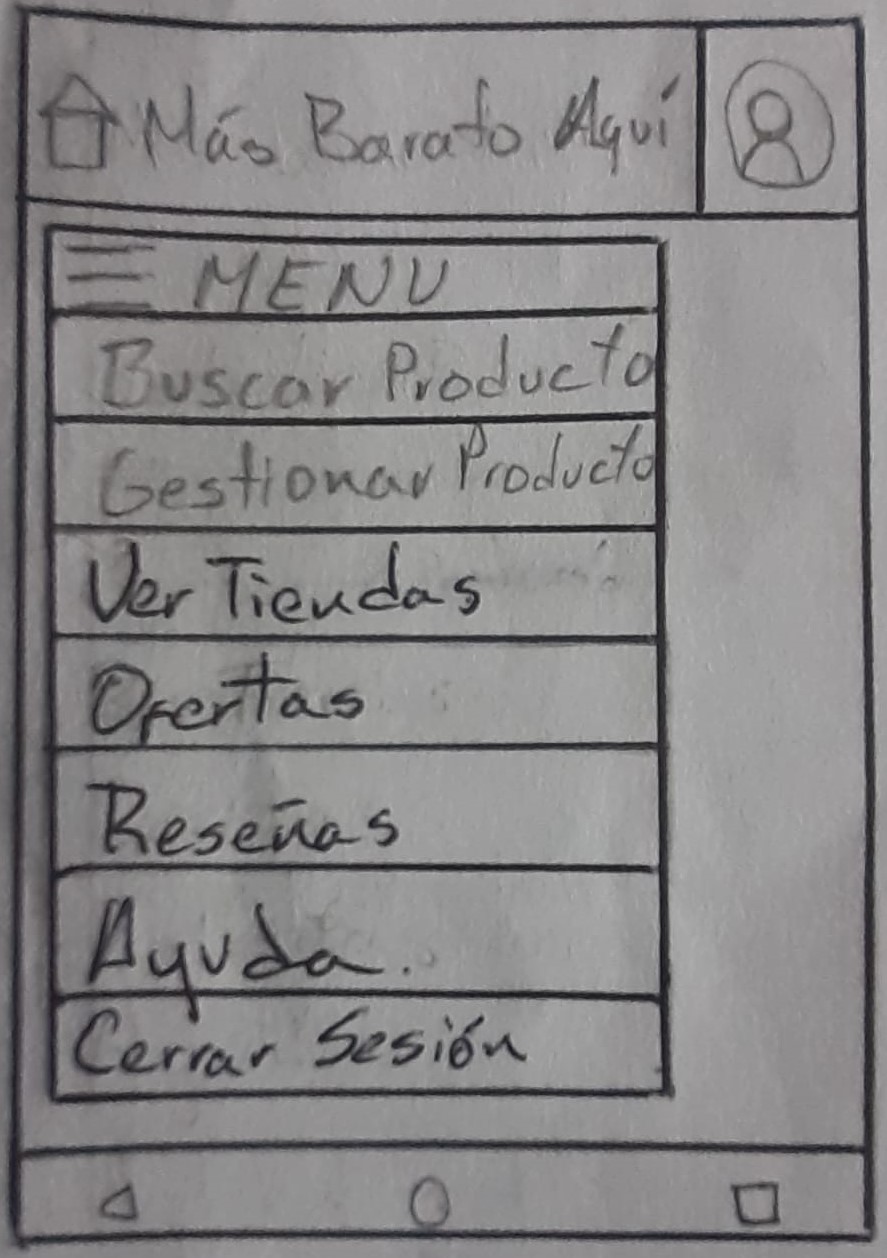 Más Barato Aquí
MENU
Buscar Producto
Gestionar Producto
Ver Tiendas
Ofertas
Reseñas
Ayuda.
Cerrar Sesión